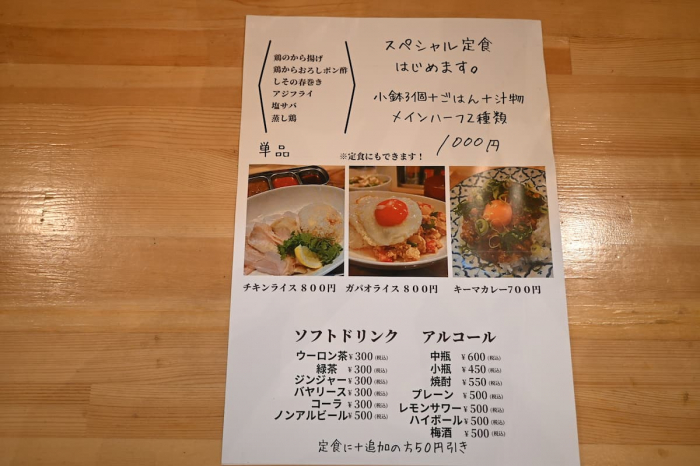 鶏のから揚げ
鶏からおろしポン酢
しその春巻き
アジフライ
塩サバ
蒸し鶏
スペシャル定食
はじめます。
小鉢3個+ごはん+汁物
メインハーフ2種類
1000円
単品
※定食にもできます!
チキンライス 800円
ガパオライス 800円
キーマカレー700円
ソフトドリンク
ウーロン茶 ¥300(税込)
緑茶 ¥300(税込)
ジンジャー ¥300(税込)
バヤリース ¥300(税込)
コーラ ¥300(税込)
ノンアルビール ¥500(税込)
アルコール
中瓶 ¥600(税込)
小瓶 ¥450(税込)
焼酎 ¥550(税込)
プレーン ¥500(税込)
レモンサワー ¥500(税込)
ハイボール ¥500(税込)
梅酒 ¥500(税込)
定食に+追加の方50円引き